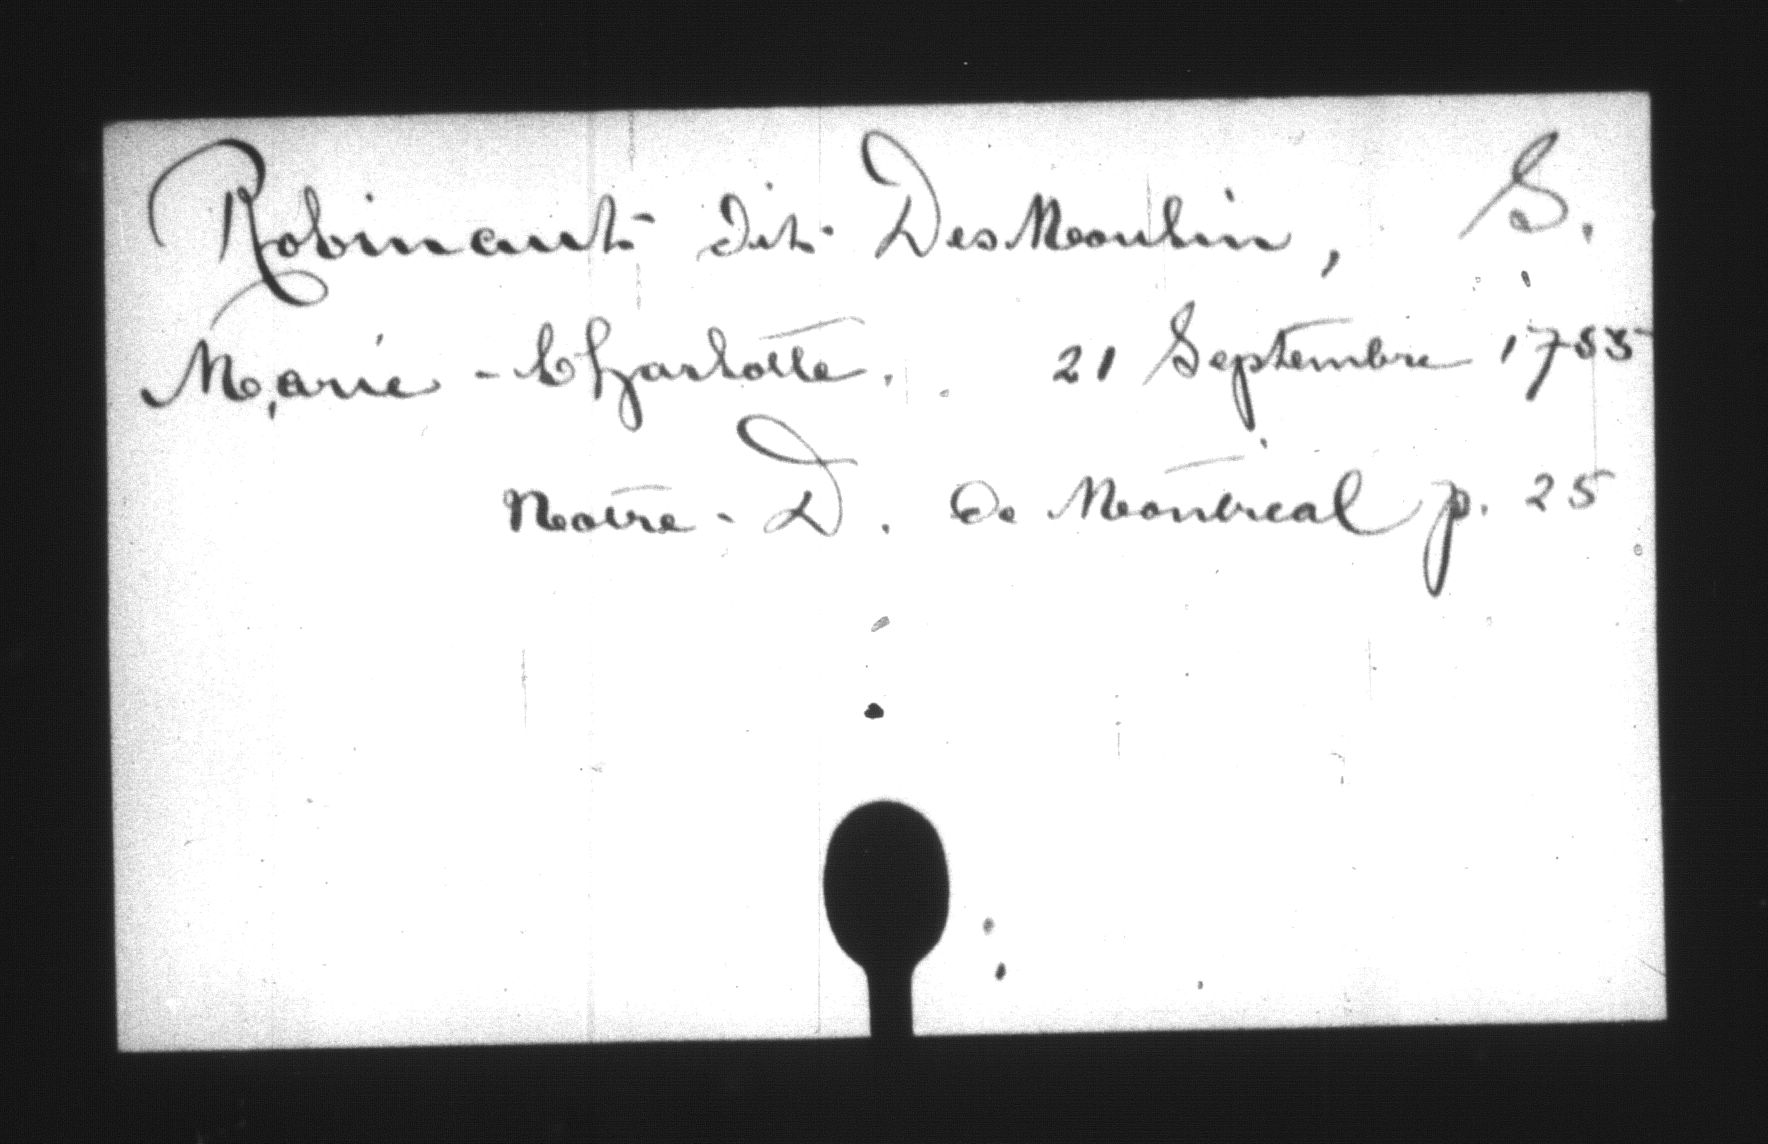 Robinault dit DesMoulin, S.
Marie-Charlotte. 21 Septembre 1755
Notre-D. de Montreal p. 25